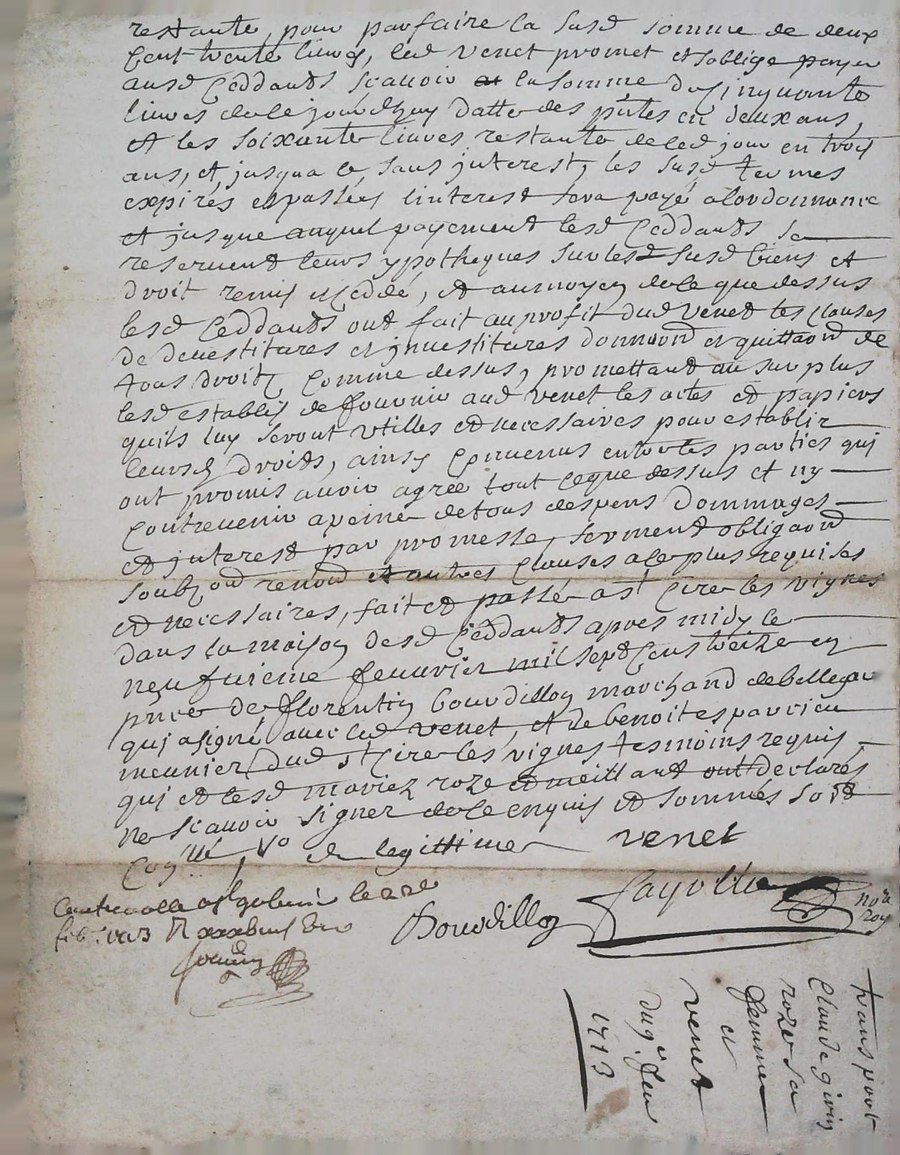 restante, pour parfaire la susd somme de deux
Cent trente livres, led venet promet et soblige payer
ausd Ceddants scavoir la somme de sinquante
livres de ce jourdhuy datte des pntes en deux ans,
et les soixante livres restante de ced jour en trois
ans, et jusqua ce, sans jnterest, les susd termes
expirés et passées linterest sera payé a lordonnance
et jusque auquel payement lesd Ceddants se
reservent leurs ypotheques sur lesd susd biens et
droit remis et Ceddé, et aumoyen de ce que dessus
lesd Ceddants ont fait au profit dud venet les clauses
de devestitures et jnvestitures donnant et quittant de
tous droitz, Comme dessus, promettant au surplus
lesd establis de fournir aud venet les actes et papiers
quils luy seront utilles et necessaires pour establir
leursd droits, ainsy Convenus entre les parties qui
ont promis avoir agree tout ceque dessus et ny
Contrevenir apeine de tous despens dommages
et jnterest par promesse, serment obligaon
soubzon renon et autres clauses ace plus requises
et necessaires, fait et passé a st Cire les vignes
dans la maison desd Ceddants apres midy le
neufvieme feuvrier mil sept Cens treize en
pnce de fflorentin bourdillon marchand de bellegar
qui a signé avec led venet, et de benoit espaurieu
meunier dud st Cire les vignes tesmoins requis
qui et lesd mariez roze et meillant ont declarés
ne scavoir signer de ce enquis et sommés
de legittime venet
Controlle a st galmier le
feb 1713
Bourdillon
fayolle nore roy
transport
Claude
roze sa
femme
et
venet
du 9e feu
1713